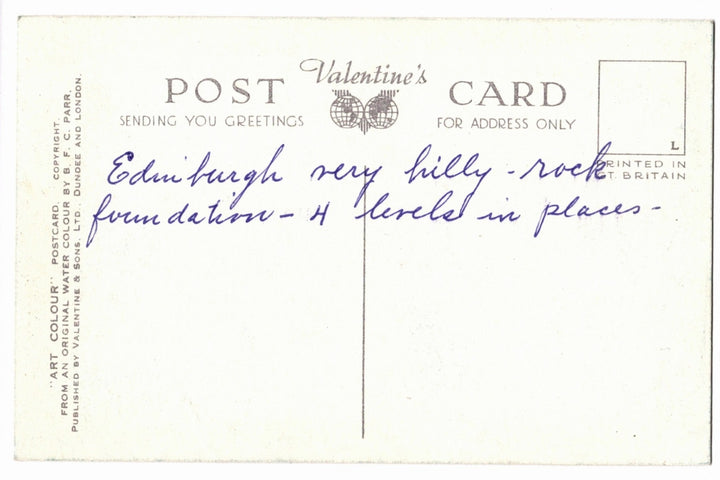 POST Valentine's CARD
SENDING YOU GREETINGS FOR ADDRESS ONLY
L
PRINTED IN
GT. BRITAIN
Edinburgh very hilly - rock
foundation - 4 levels in places -
"ART COLOUR" POSTCARD. COPYRIGHT.
FROM AN ORIGINAL WATER COLOUR BY B. F. C. PARR.
PUBLISHED BY VALENTINE & SONS, LTD., DUNDEE AND LONDON.